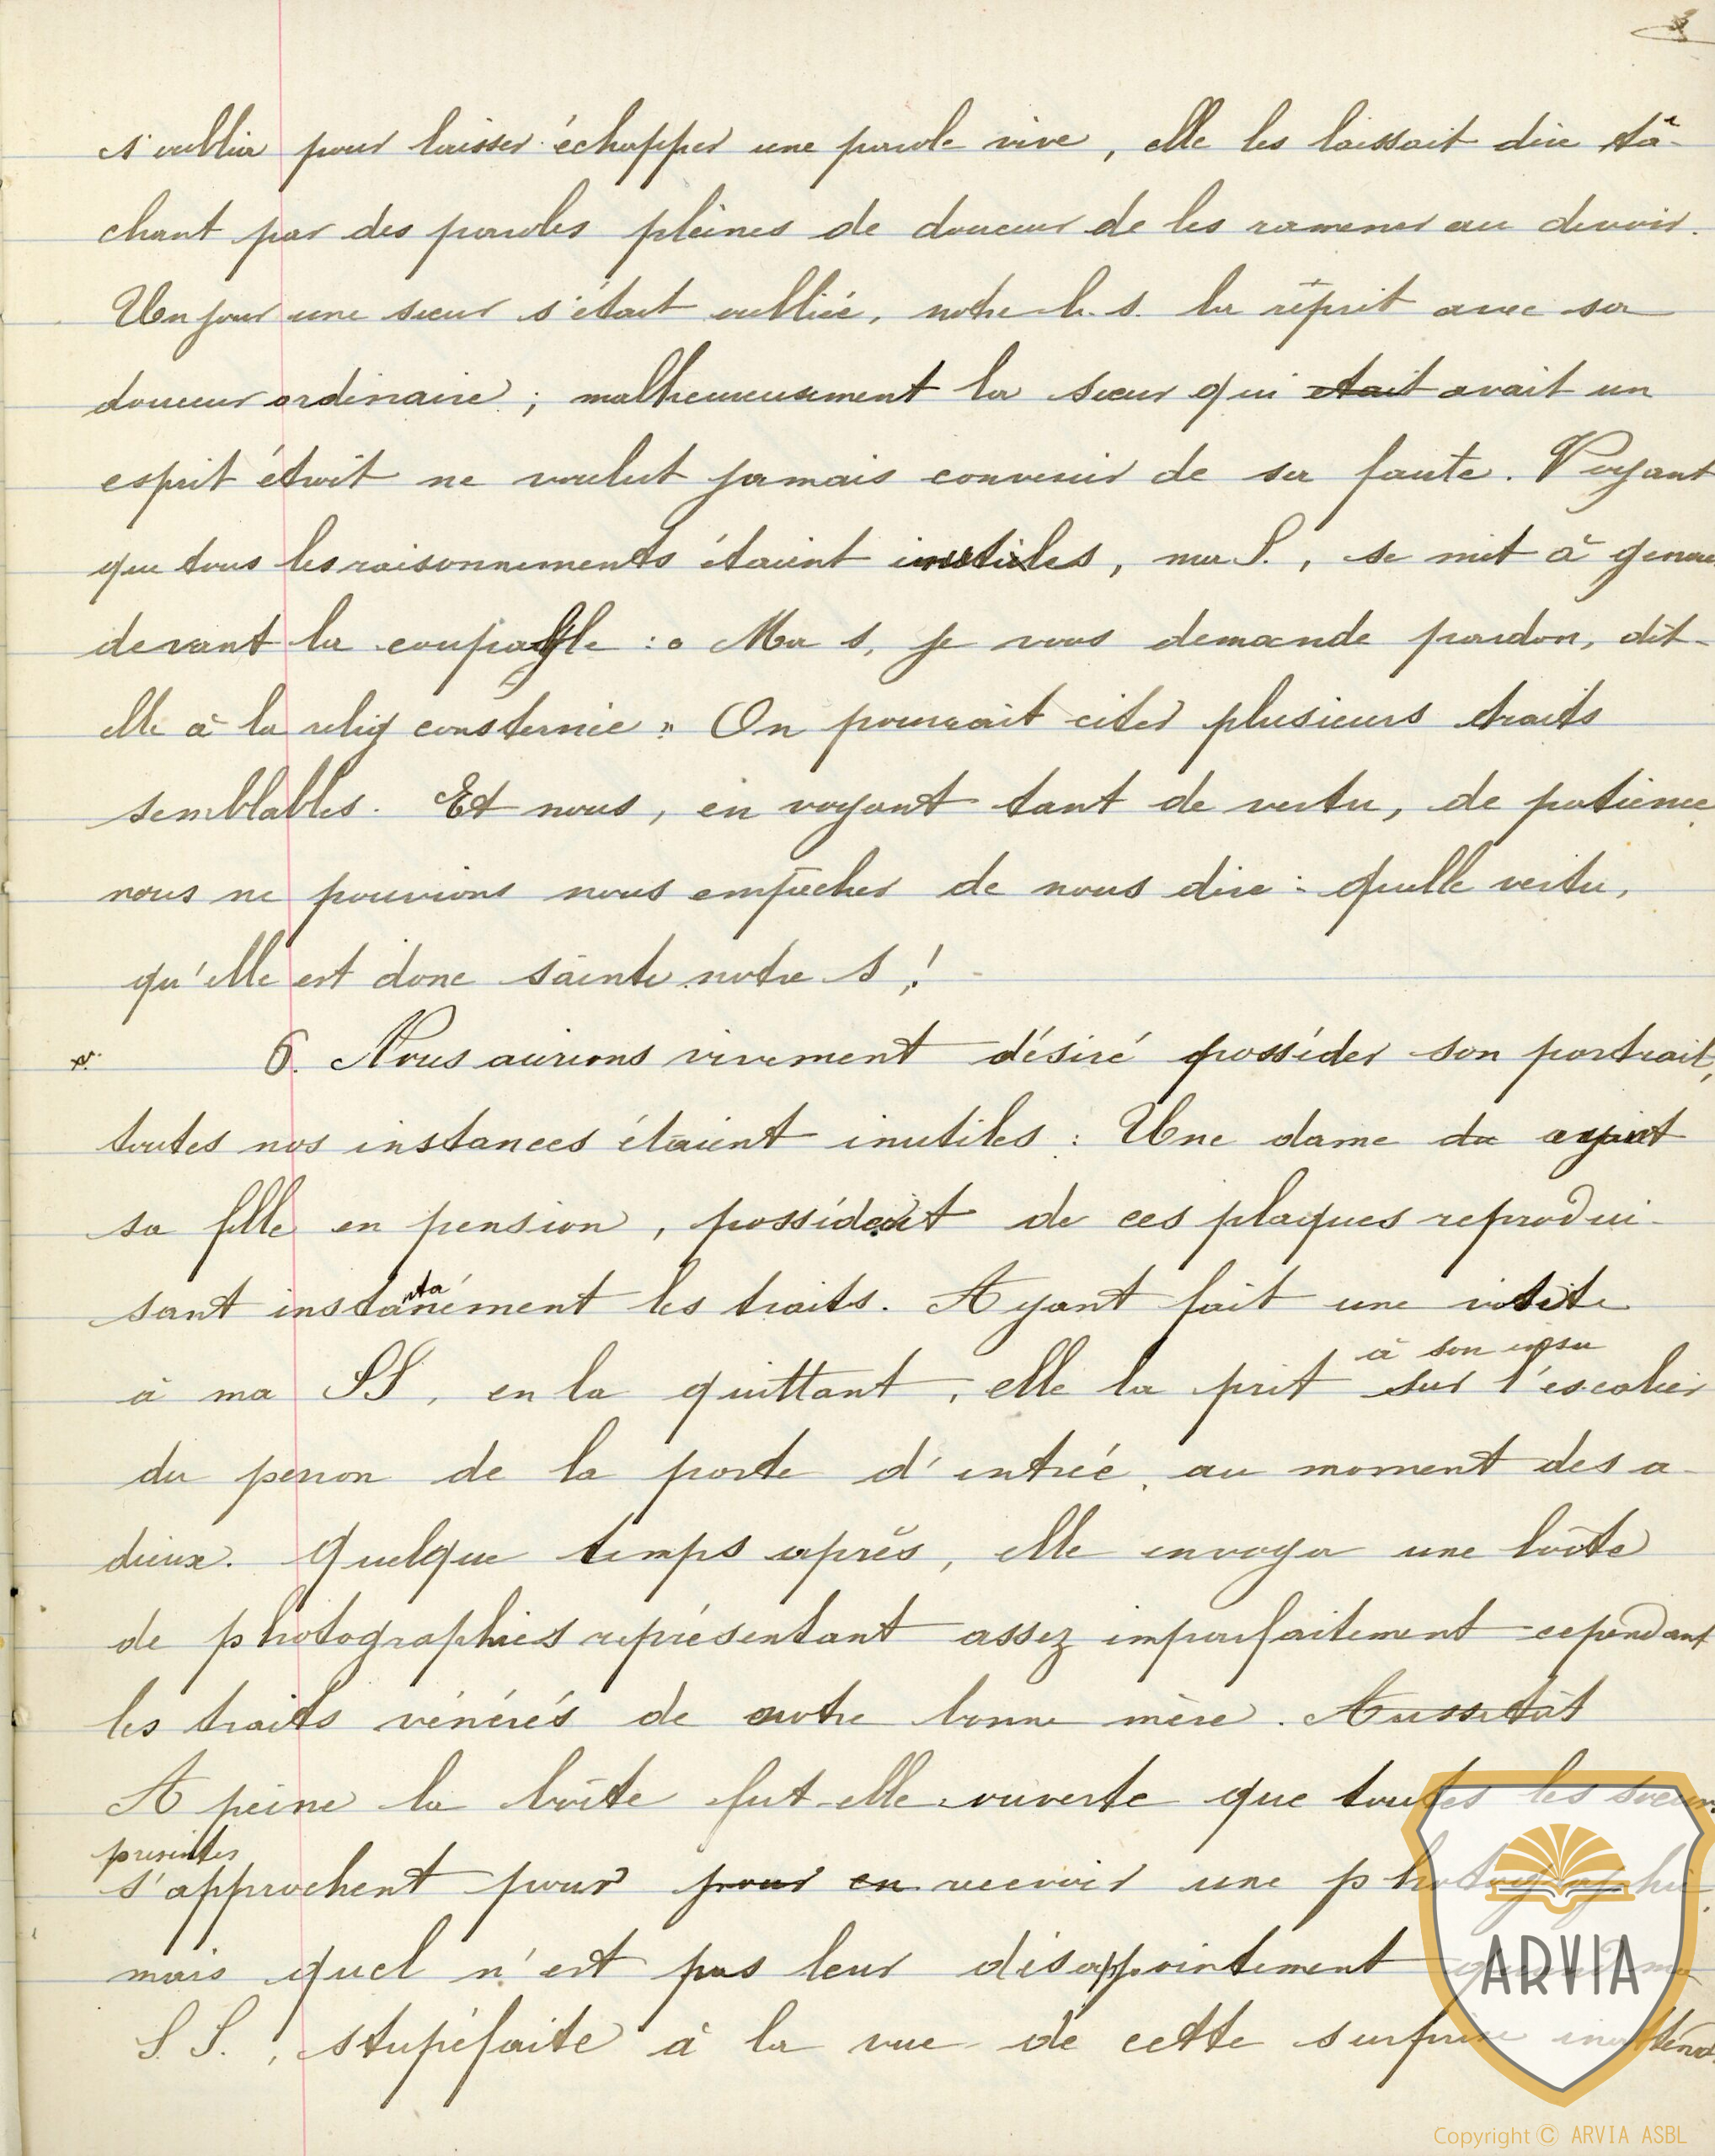 3
s'oublier pour laisser échapper une parole vive, elle les laissait dire tâ-
chant par des paroles pleines de douceur de les ramener au devoir.
Un jour une sœur s'était oubliée, notre b. s. la réprit avec sa
douceur ordinaire ; malheureusement la sœur qui était avait un
esprit étroit ne voulut jamais convenir de sa faute. Voyant
que tous les raisonnements étaient inutiles, ma S., se mit à genou
devant la coupable : « Ma s, je vous demande pardon, dit-
elle à la relig consternée » On pourrait citer plusieurs traits
semblables. Et nous, en voyant tant de vertu, de patience
nous ne pouvions nous empêcher de nous dire : quelle vertu,
qu'elle est donc sainte notre S !
6. Nous aurions vivement désiré posséder son portrait,
toutes nos instances étaient inutiles : Une dame da ayant
sa fille en pension, possédait de ces plaques reprodui-
sant instanément les traits. Ayant fait une visite
ta
à ma SS, en la quittant, elle la prit sur l'escalier
à son insu
du perron de la porte d'entrée, au moment des a-
dieux. Quelque temps après, elle envoya une boîte
de photographies représentant assez imparfaitement cependant
les traits vénérés de notre bonne mère. Aussitôt
A peine la boîte fut-elle ouverte que toutes les sœurs
présentes
s'approchent pour pour en recevoir une photographie,
mais quel n'est pas leur disappointement quand ma
S. S., stupéfaite à la vue de cette surprise inattend
ARVIA
Copyright © ARVIA ASBL